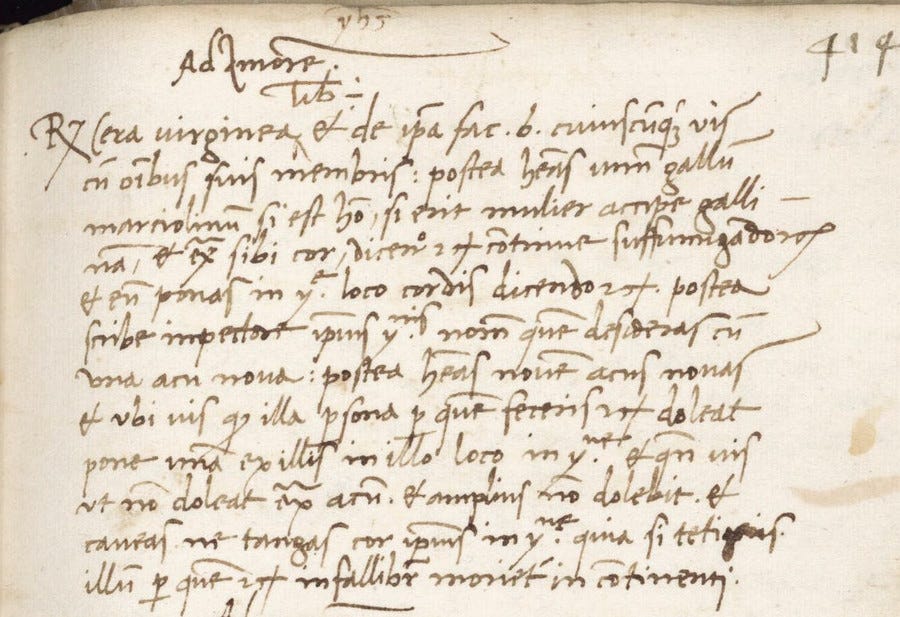 yhs
414
Ad Amorē.
lib. i
Rx Cera virginea, & de ip̄a fac. b. cuiuscūq; vis
cū oībus suis membris: postea hēas unū gallū
marciolinū si est hō, si erit mulier accipe galli
nā, & ex̄ sibi cor, dicen° 2 & continue suffumigādo
& eū ponas in y.ᵉ loco cordis dicendo postea
scribe in pectore ip̄ius y.ⁿⁱˢ nom̄ quē desideras cū
una acu nova: postea hēas novē acus novas
& ubi vis q; illa p̄sona p quē feceris doleat
pone unā ex illis in illo loco in y.ⁿᵉ & qn̄ vis
ut nō doleat ex̄ acū. & amplius nō dolebit. &
caveas ne tangas cor ip̄ius in y.ⁿᵉ quia si tetigeris
illū p quē infallibr̄ moriet̄ in cōtinenti.